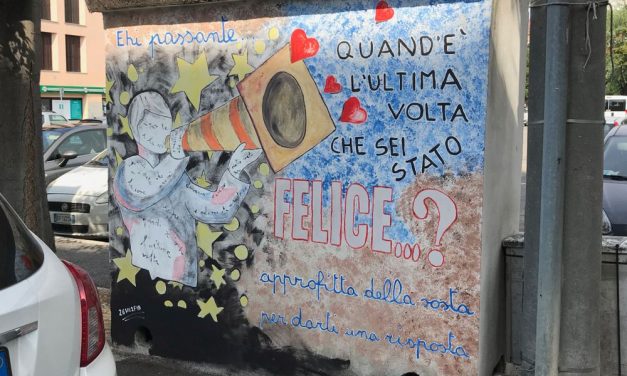 Ehi passante...
QUAND'È
L'ULTIMA
VOLTA
CHE SEI
STATO
FELICE...?
approfitta della sosta
per darti una risposta